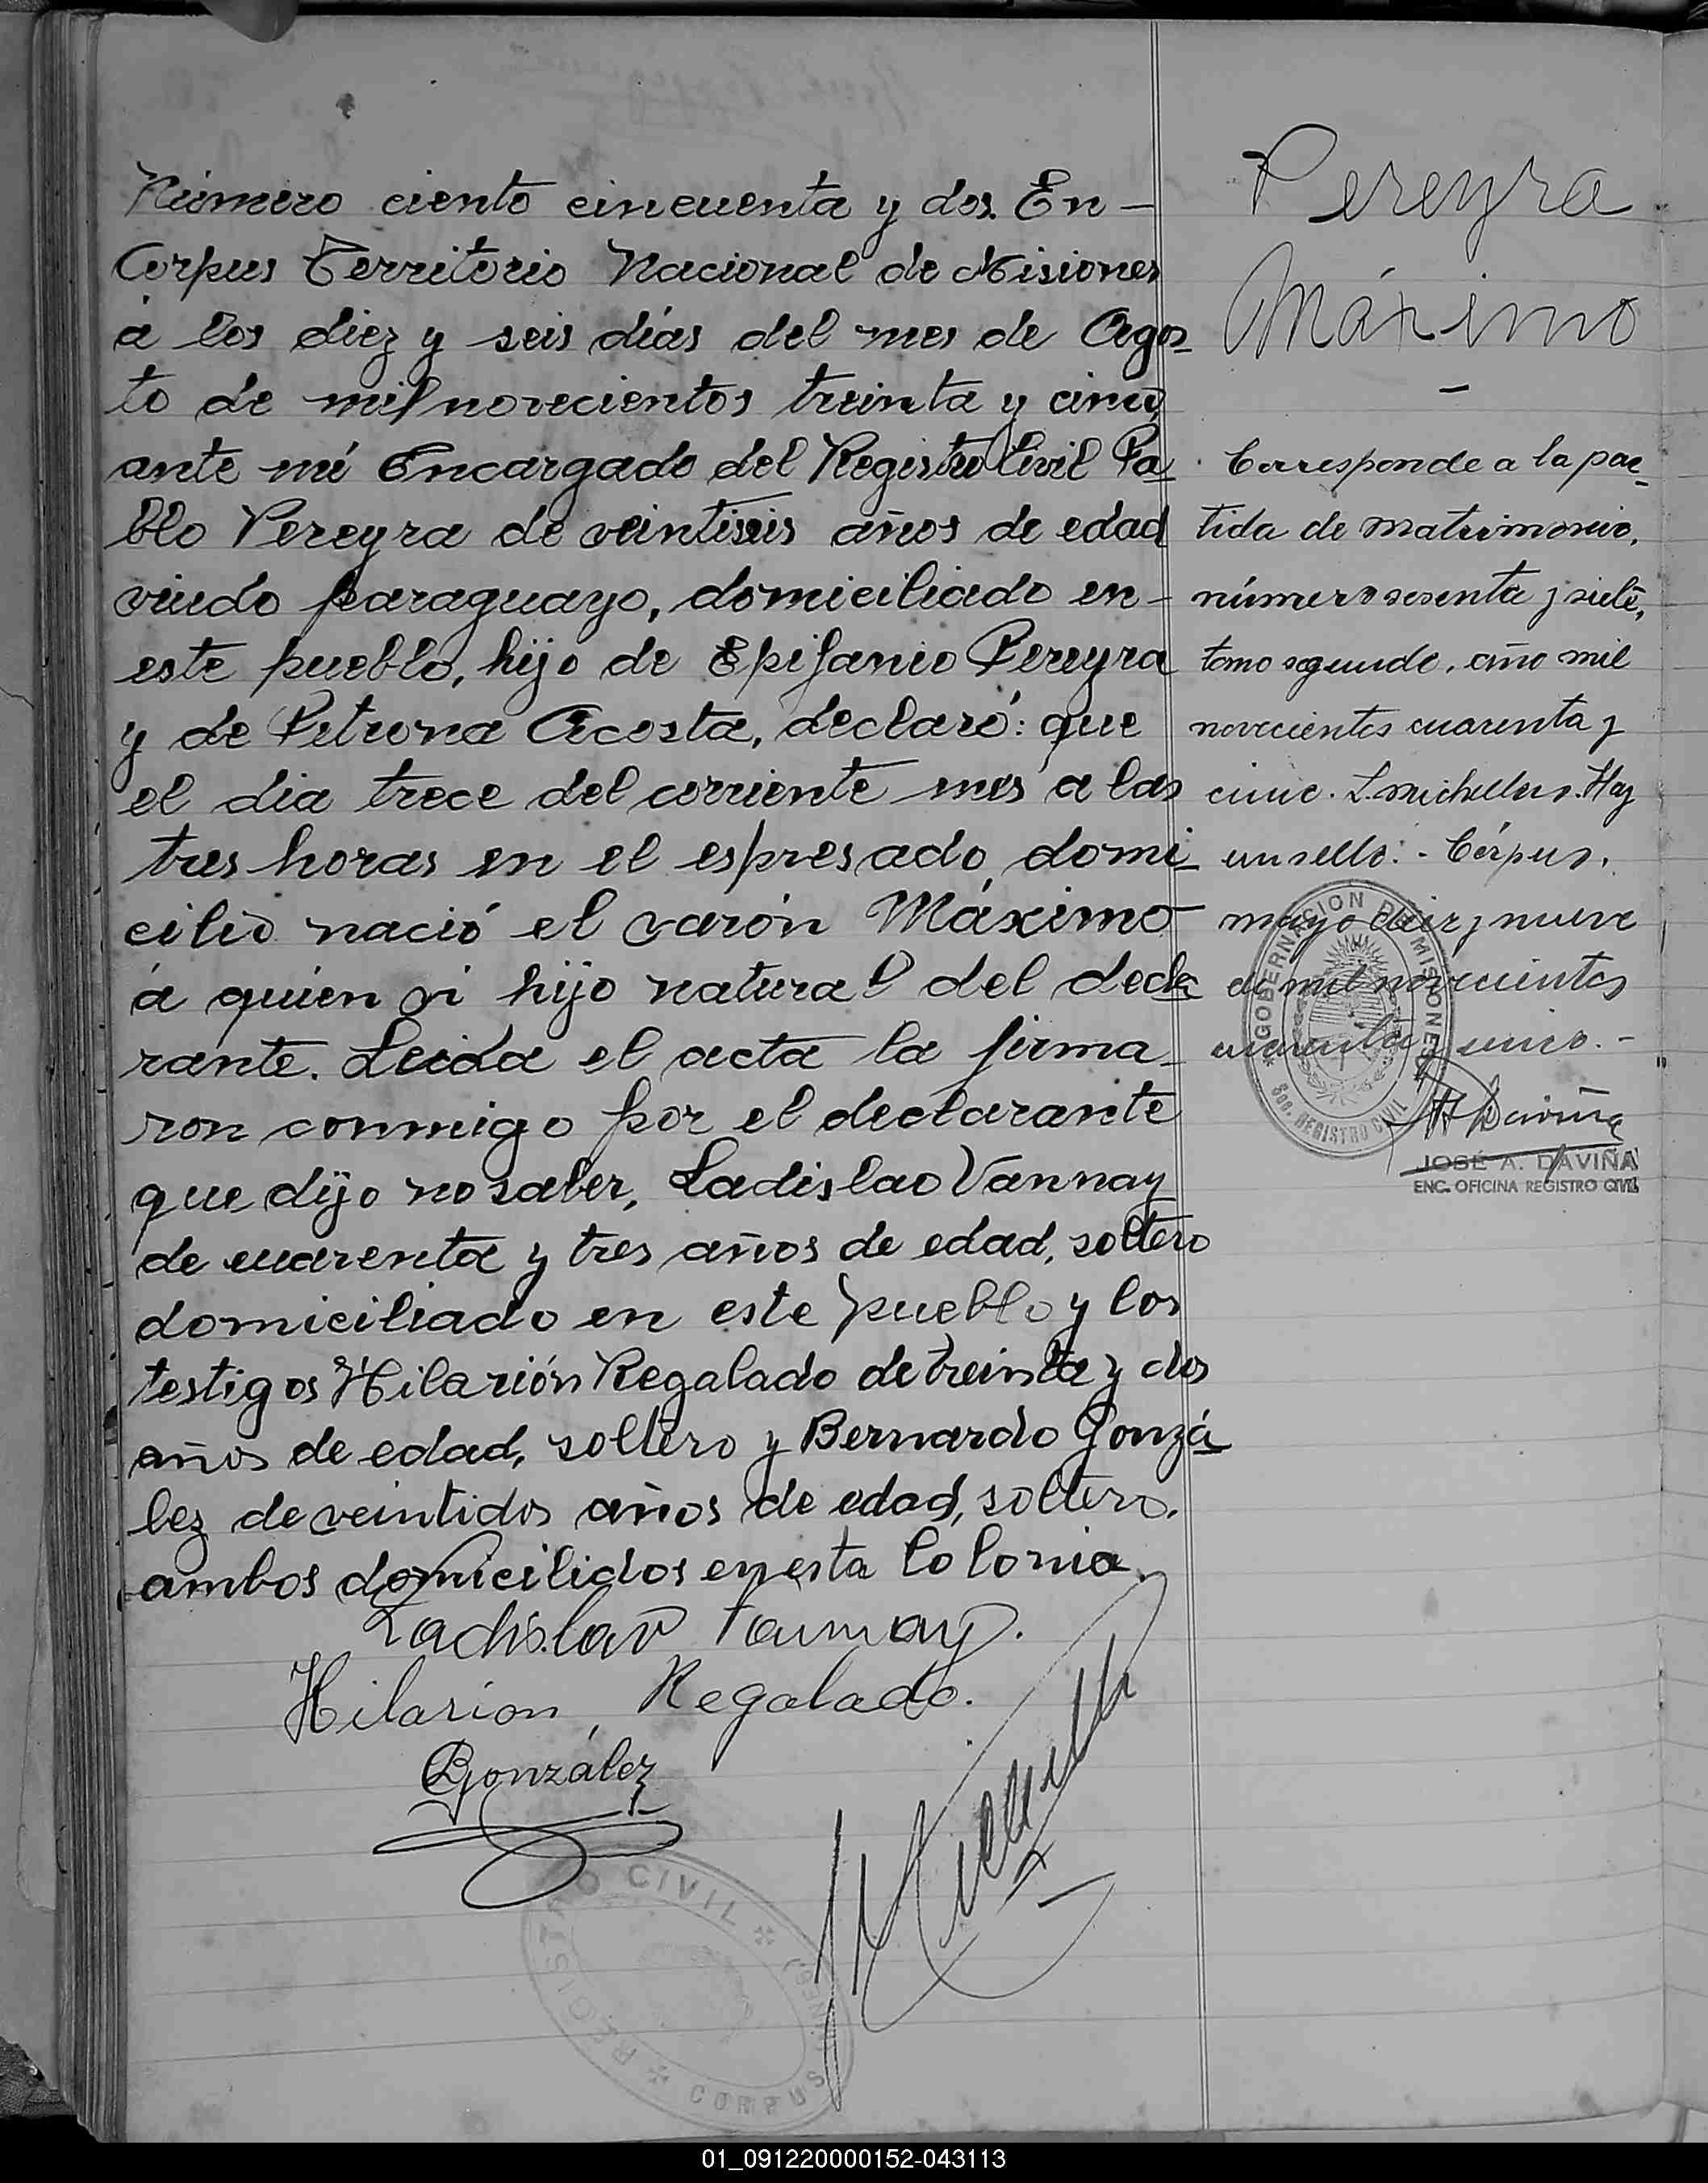 Número ciento cincuenta y dos. En -
Corpus Territorio Nacional de Misiones
á los diez y seis días del mes de Agos-
to de mil novecientos treinta y cinco,
ante mí Encargado del Registro Civil Pa-
blo Pereyra de veintiseis años de edad
viudo paraguayo, domiciliado en -
este pueblo, hijo de Epifanio Pereyra
y de Petrona Acosta, declaró: que
el dia trece del corriente mes a las
tres horas en el espresado domi-
cilio nació el varón Máximo
á quien vi hijo natural del decla
rante. Leida el acta la firma-
ron conmigo por el declarante
que dijo no saber, Ladislao Vannay
de cuarenta y tres años de edad, soltero
domiciliado en este pueblo y los
testigos Hilarión Regalado de treinta y dos
años de edad, soltero y Bernardo Gonzá-
lez de veintidos años de edad, soltero.
ambos domicilidos en esta Colonia.
Ladislao
Hilarion Regalado.
BGonzález
REGISTRO CIVIL
CORPUS
Pereyra
Máximo
-
Corresponde a la par-
tida de matrimonio,
número sesenta y siete,
tomo segundo, año mil
novecientos cuarenta y
cinco. Hay
un sello: - Córpus,
mayo diez y nueve
de mil novecientos
cuarenta y cinco. -
GOBERNACION DE MISIONES
SOC. REGISTRO CIVIL
Daviña
JOSÉ A. DAVIÑA
ENC. OFICINA REGISTRO CIVIL
01_091220000152-043113